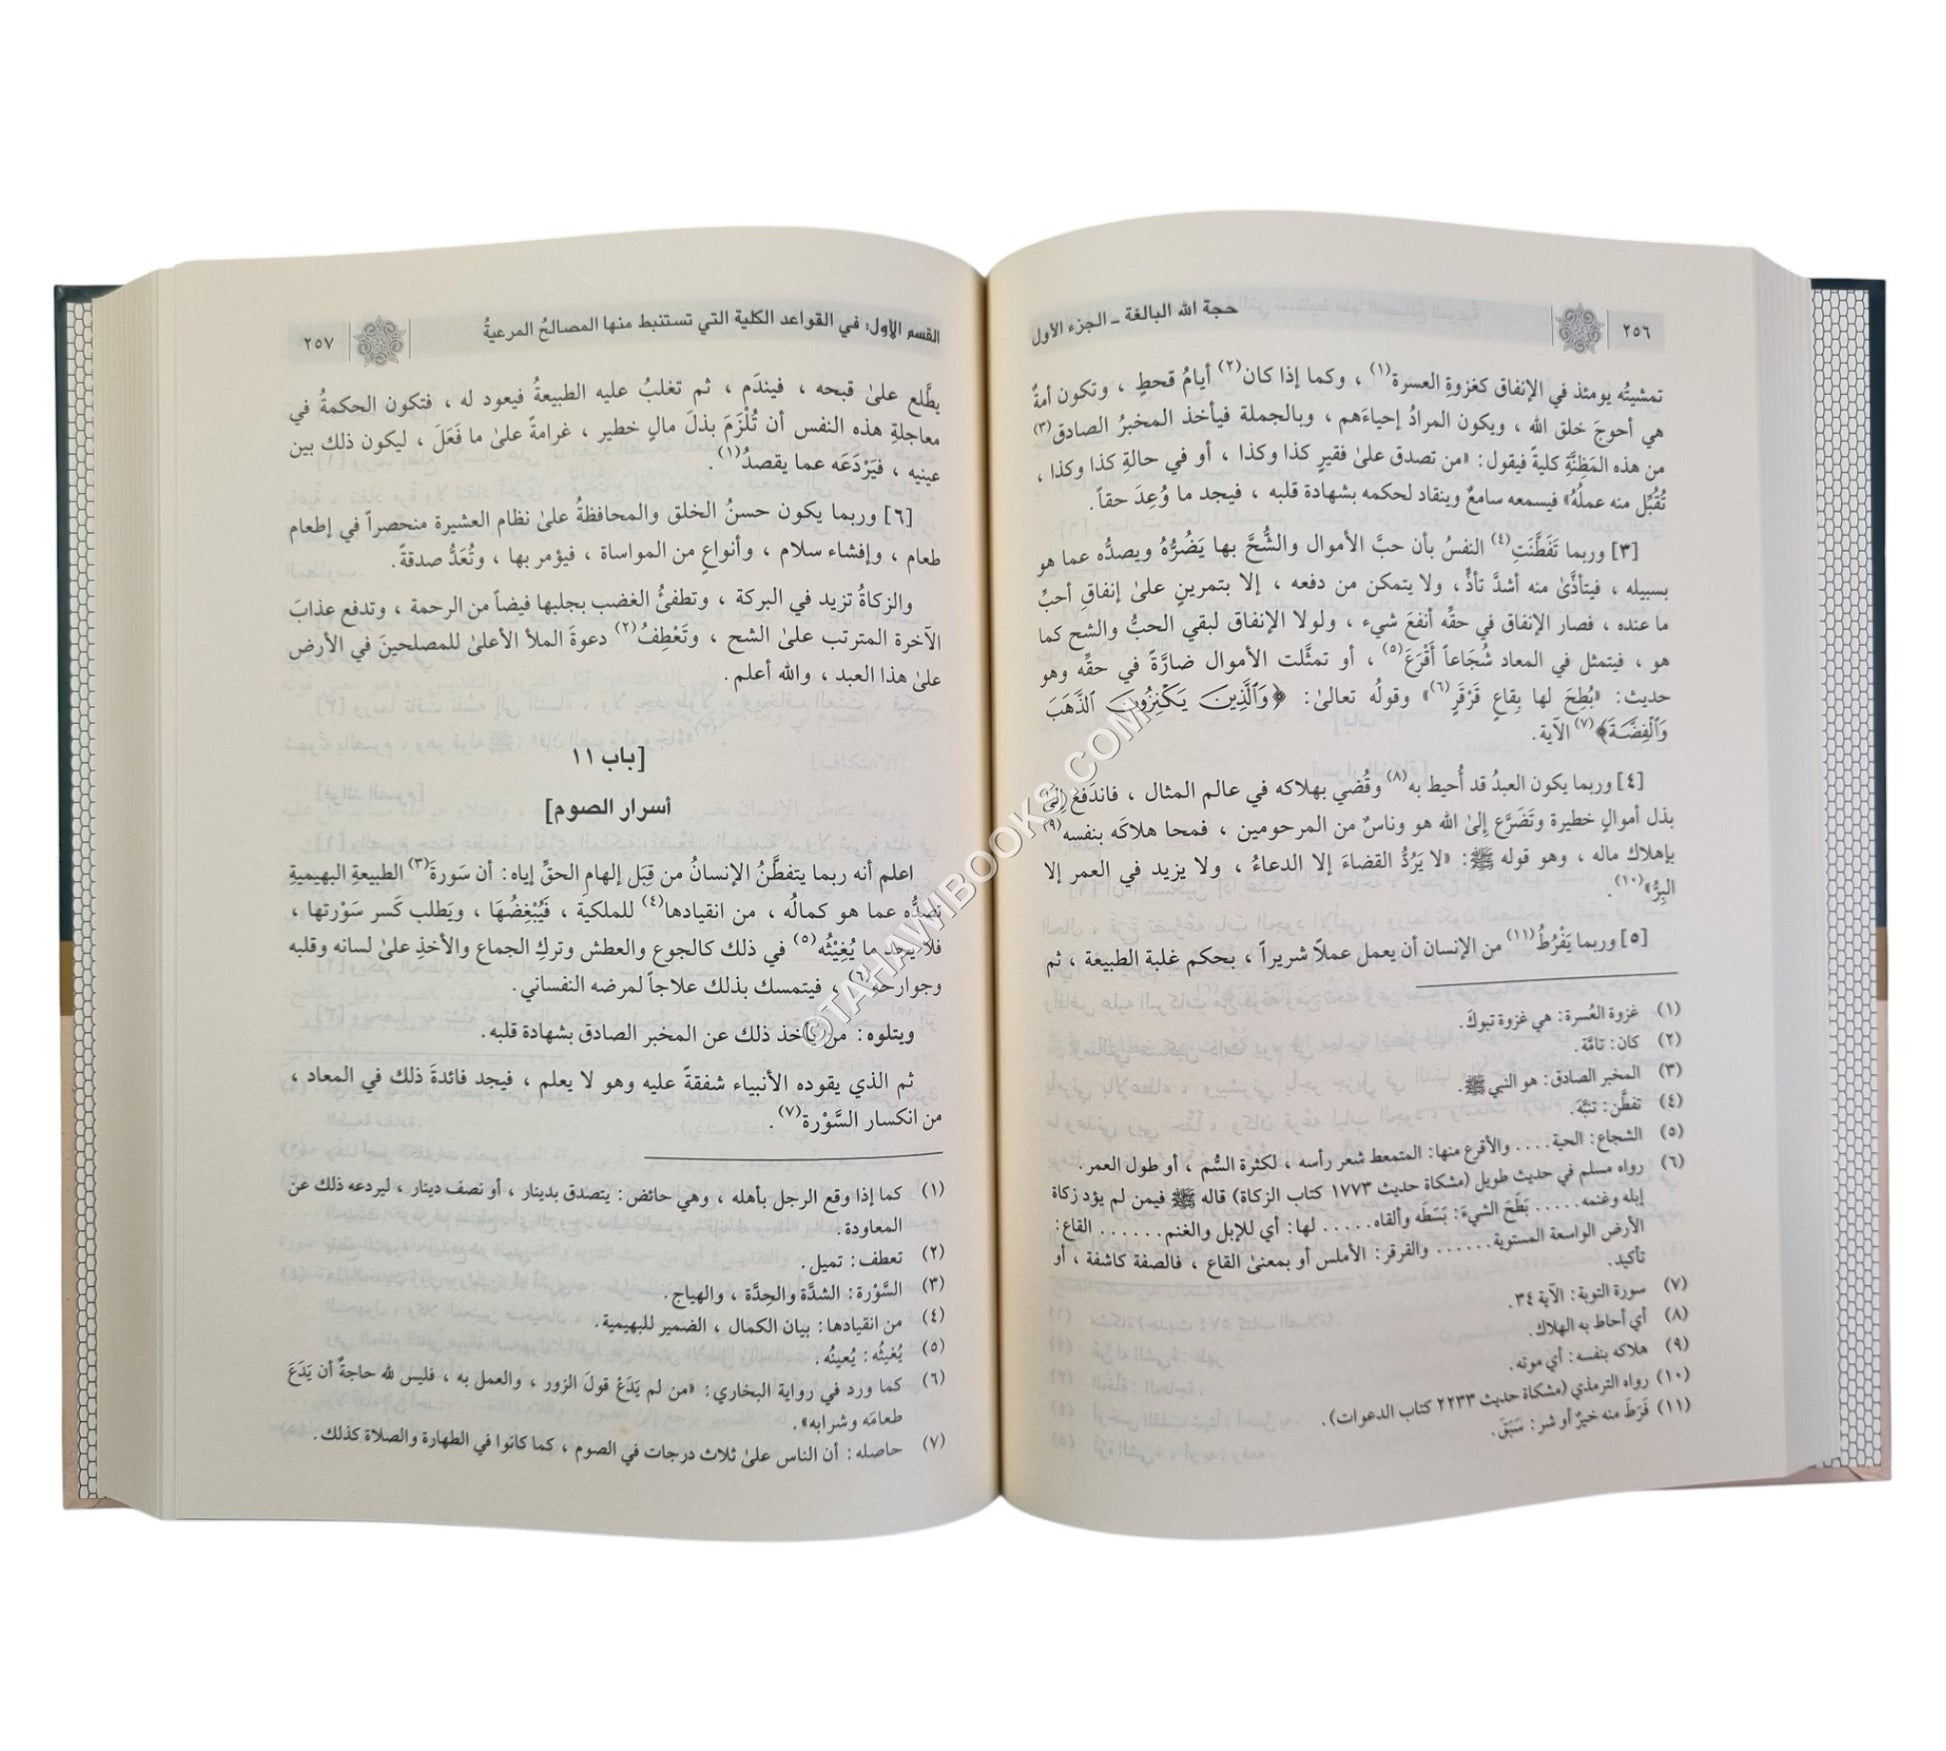 ٢٥٦
حجة الله البالغة ـ الجزء الأول
تمشيتُه يومئذ في الإنفاق كغزوةِ العسرة(١) ، وكما إذا كان(٢) أيامُ قحطٍ ، وتكون أمةٌ
هي أحوجَ خلق الله ، ويكون المرادُ إحياءَهم ، وبالجملة فيأخذ المخبرُ الصادق(٣)
من هذه المَظِنَّةِ كليةً فيقول: «من تصدق علىٰ فقيرٍ كذا وكذا ، أو في حالةِ كذا وكذا ،
تُقُبِّل منه عملُهُ» فيسمعه سامعٌ وينقاد لحكمه بشهادة قلبه ، فيجد ما وُعِدَ حقاً.
[٣] وربما تَفَطَّنَتِ(٤) النفسُ بأن حبَّ الأموال والشُّحَّ بها يَضُرُّهُ ويصدُّه عما هو
بسبيله ، فيتأذَّىٰ منه أشدَّ تأذٍّ، ولا يتمكن من دفعه ، إلا بتمرينٍ علىٰ إنفاقِ أحبِّ
ما عنده ، فصار الإنفاق في حقِّه أنفعَ شيء ، ولولا الإنفاق لبقي الحبُّ والشح كما
هو ، فيتمثل في المعاد شُجَاعاً أَقْرَعَ(٥) ، أو تمثَّلت الأموال ضارَّةً في حقِّه وهو
حديث: «بُطِحَ لها بِقاعٍ قَرْقَرٍ(٦)» وقولُه تعالىٰ: ﴿وَٱلَّذِينَ يَكْنِزُونَ ٱلذَّهَبَ
وَٱلْفِضَّةَ﴾(٧) الآية.
[٤] وربما يكون العبدُ قد أُحيط به(٨) وقُضي بهلاكه في عالم المثال ، فاندَفَعَ إِلَىٰ
بذل أموالٍ خطيرة وتَضَرَّع إِلىٰ الله هو وناسٌ من المرحومين ، فمحا هلاكَه بنفسه(٩)
بإهلاك ماله ، وهو قوله ﷺ: «لا يَرُدُّ القضاءَ إلا الدعاءُ ، ولا يزيد في العمر إلا
البِرُّ»(١٠).
[٥] وربما يَفْرُطُ(١١) من الإنسان أن يعمل عملاً شريراً ، بحكم غلبة الطبيعة ، ثم
(١) غزوة العُسرة: هي غزوة تبوكَ.
(٢) كان: تامَّة.
(٣) المخبر الصادق: هو النبي ﷺ.
(٤) تفطَّن: تنبَّهَ.
(٥) الشجاع: الحية.... والأقرع منها: المتمعط شعر رأسه ، لكثرة السُّم ، أو طول العمر.
(٦) رواه مسلم في حديث طويل (مشكاة حديث ١٧٧٣ كتاب الزكاة) قاله ﷺ فيمن لم يؤد زكاة
إبله وغنمه..... بَطَحَ الشيءَ: بَسَطَه وألقاه..... لها: أي للإبل والغنم....... القاع:
الأرض الواسعة المستوية...... والقرقر: الأملس أو بمعنىٰ القاع ، فالصفة كاشفة ، أو
تأكيد.
(٧) سورة التوبة: الآية ٣٤.
(٨) أي أحاط به الهلاك.
(٩) هلاكه بنفسه: أي موته.
(١٠) رواه الترمذي (مشكاة حديث ٢٢٣٣ كتاب الدعوات).
(١١) فَرَطَ منه خيرٌ أو شر: سَبَقَ.
القسم الأول: في القواعد الكلية التي تستنبط منها المصالحُ المرعيةُ
٢٥٧
يطَّلع علىٰ قبحه ، فيندَم ، ثم تغلبُ عليه الطبيعةُ فيعود له ، فتكون الحكمةُ في
معاجلةِ هذه النفس أن تُلْزَمَ بذلَ مالٍ خطير ، غرامةً علىٰ ما فَعَلَ ، ليكون ذلك بين
عينيه ، فيَرْدَعَه عما يقصدُ(١).
[٦] وربما يكون حسنُ الخلق والمحافظةُ علىٰ نظام العشيرة منحصراً في إطعام
طعام ، وإفشاء سلام ، وأنواعٍ من المواساة ، فيؤمر بها ، وتُعَدُّ صدقةً.
والزكاةُ تزيد في البركة ، وتطفئُ الغضب بجلبها فيضاً من الرحمة ، وتدفع عذابَ
الآخرة المترتب علىٰ الشح ، وتَعْطِفُ(٢) دعوةَ الملأ الأعلىٰ للمصلحينَ في الأرض
علىٰ هذا العبد ، والله أعلم.
[باب ١١
أسرار الصوم]
اعلم أنه ربما يتفطَّنُ الإنسانُ من قِبَل إلهامِ الحقِّ إياه: أن سَورةَ(٣) الطبيعةِ البهيميةِ
تصدُّه عما هو كمالُه ، من انقيادها(٤) للملكية ، فَيُبْغِضُهَا ، ويَطلب كَسر سَوْرتها ،
فلا يجد ما يُغِيْثُه(٥) في ذلك كالجوع والعطش وتركِ الجماع والأخذِ علىٰ لسانه وقلبه
وجوارحه(٦) ، فيتمسك بذلك علاجاً لمرضه النفساني.
ويتلوه: من يأخذ ذلك عن المخبر الصادق بشهادة قلبه.
ثم الذي يقوده الأنبياء شفقةً عليه وهو لا يعلم ، فيجد فائدةَ ذلك في المعاد ،
من انكسار السَّوْرة(٧).
(١) كما إذا وقع الرجل بأهله ، وهي حائض: يتصدق بدينار ، أو نصف دينار ، ليردعه ذلك عن
المعاودة.
(٢) تعطف: تميل.
(٣) السَّوْرة: الشدَّة والحِدَّة ، والهياج.
(٤) من انقيادها: بيان الكمال ، الضمير للبهيمية.
(٥) يُغيثُه: يُعينُه.
(٦) كما ورد في رواية البخاري: «من لم يَدَعْ قولَ الزور ، والعمل به ، فليس لله حاجةٌ أن يَدَعَ
طعامَه وشرابه».
(٧) حاصله: أن الناس علىٰ ثلاث درجات في الصوم ، كما كانوا في الطهارة والصلاة كذلك.
©TAHAWIBOOKS.COM